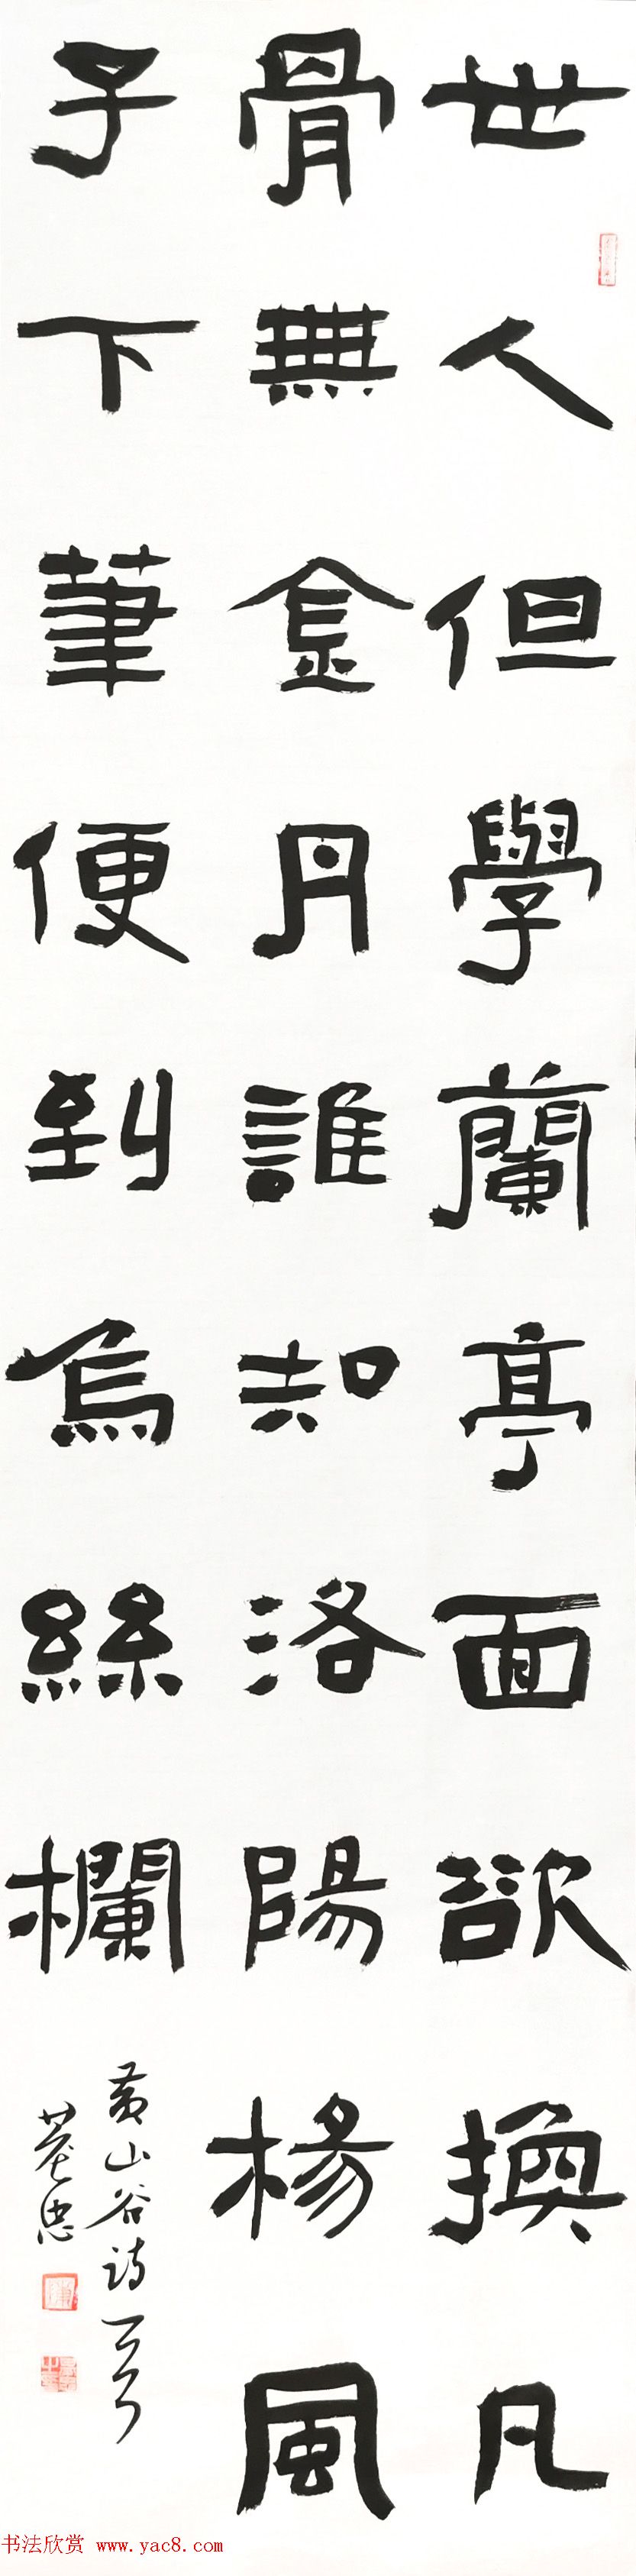 世人但學蘭亭面欲換凡
骨無金丹誰知洛陽楊風
子下筆便到烏絲欄
黄山谷詩一首
书法欣赏 www.yac8.com